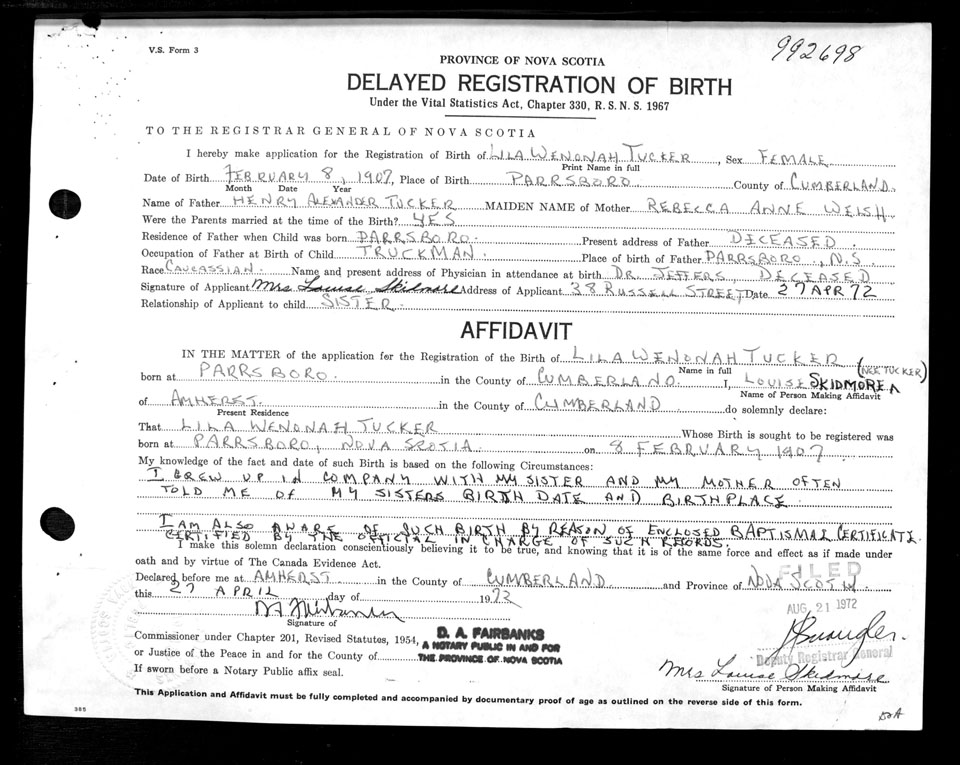 V.S. Form 3
992698
PROVINCE OF NOVA SCOTIA
DELAYED REGISTRATION OF BIRTH
Under the Vital Statistics Act, Chapter 330, R.S.N.S. 1967
TO THE REGISTRAR GENERAL OF NOVA SCOTIA
I hereby make application for the Registration of Birth of LILA WENONAH TUCKER, Sex FEMALE
Print Name in full
Date of Birth FEBRUARY 8, 1907, Place of Birth PARRSBORO County of CUMBERLAND
Month Date Year
Name of Father HENRY ALEXANDER TUCKER MAIDEN NAME of Mother REBECCA ANNE WELSH
Were the Parents married at the time of the Birth? YES
Residence of Father when Child was born PARRSBORO. Present address of Father DECEASED.
Occupation of Father at Birth of Child TRUCKMAN. Place of birth of Father PARRSBORO, N.S.
Race CAUCASSIAN. Name and present address of Physician in attendance at birth DR. JEFFERS, DECEASED
Signature of Applicant Mrs Louise Skidmore Address of Applicant 38 RUSSELL STREET, Date 27 APR 72
Relationship of Applicant to child SISTER.
AFFIDAVIT
IN THE MATTER of the application for the Registration of the Birth of LILA WENONAH TUCKER
Name in full
(NEE TUCKER)
born at PARRSBORO. in the County of CUMBERLAND. I, LOUISE SKIDMORE
Name of Person Making Affidavit
of AMHERST. in the County of CUMBERLAND do solemnly declare:
Present Residence
That LILA WENONAH TUCKER Whose Birth is sought to be registered was
born at PARRSBORO, NOVA SCOTIA. on 8 FEBRUARY 1907.
My knowledge of the fact and date of such Birth is based on the following Circumstances:
I GREW UP IN COMPANY WITH MY SISTER AND MY MOTHER OFTEN
TOLD ME OF MY SISTERS BIRTH DATE AND BIRTHPLACE.
I AM ALSO AWARE OF SUCH BIRTH BY REASON OF ENCLOSED BAPTISMAL CERTIFICATE
CERTIFIED BY THE OFFICIAL IN CHARGE OF SUCH RECORDS.
I make this solemn declaration conscientiously believing it to be true, and knowing that it is of the same force and effect as if made under
oath and by virtue of The Canada Evidence Act.
FILED
Declared before me at AMHERST. in the County of CUMBERLAND and Province of NOVA SCOTIA
this 27 APRIL day of 1972
AUG. 21 1972
Signature of
Commissioner under Chapter 201, Revised Statutes, 1954,
or Justice of the Peace in and for County of
If sworn before a Notary Public affix seal.
D. A. FAIRBANKS
A NOTARY PUBLIC IN AND FOR
THE PROVINCE OF NOVA SCOTIA
Deputy Registrar General
Mrs Louise Skidmore
Signature of Person Making Affidavit
This Application and Affidavit must be fully completed and accompanied by documentary proof of age as outlined on the reverse side of this form.
385